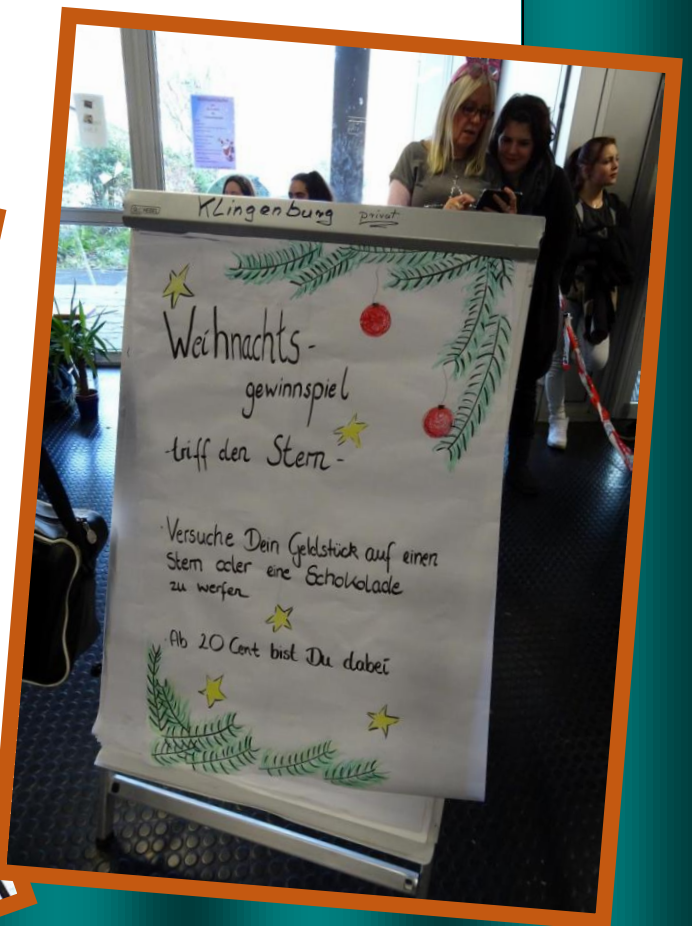 KLingenburg privat
Weihnachts-
gewinnspiel
-triff den Stern-
· Versuche Dein Geldstück auf einen
Stern oder eine Schokolade
zu werfen
· Ab 20 Cent bist Du dabei